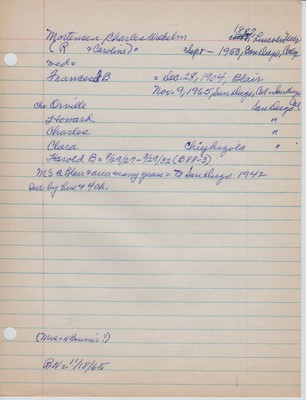 Mortensen Charles Wilhelm 1882 Lincoln, Nebr
(R + Caroline) = Sept - 1953, San Diego, Calif
med =
Frances B = Dec. 28, 1904, Blair
Nov. 9, 1965, San Diego, Cal = San Diego
ch: Orville San Diego
Howard "
Charles "
Clara "
Harold B = 3/29/32 (B88-3)
MS @ Blair & area many years = To San Diego 1942
Sur. by hus & 4 ch.
(Mrs. = Bonnie?)
BN = 11/18/65